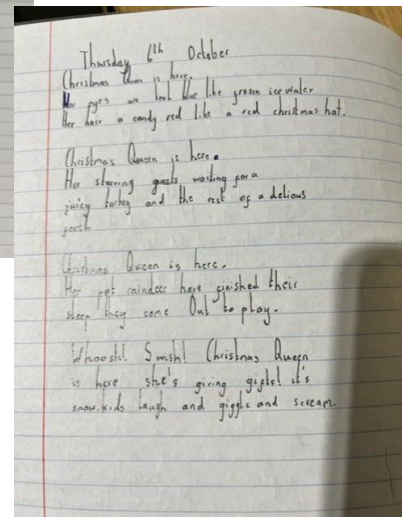 Thursday 6th October
Christmas Queen is here.
Her eyes are teal blue like frozen ice water
Her hair a candy red like a red christmas hat.
Christmas Queen is here.
Her starving guests waiting for a
juicy turkey and the rest of a delious
Christmas Queen is here.
Her pet raindeer have finished their
sleep they come Out to play.
Whoosh! Swish! Christmas Queen
is here she's giving gifts! it's
snow. kids laugh and giggle and scream.